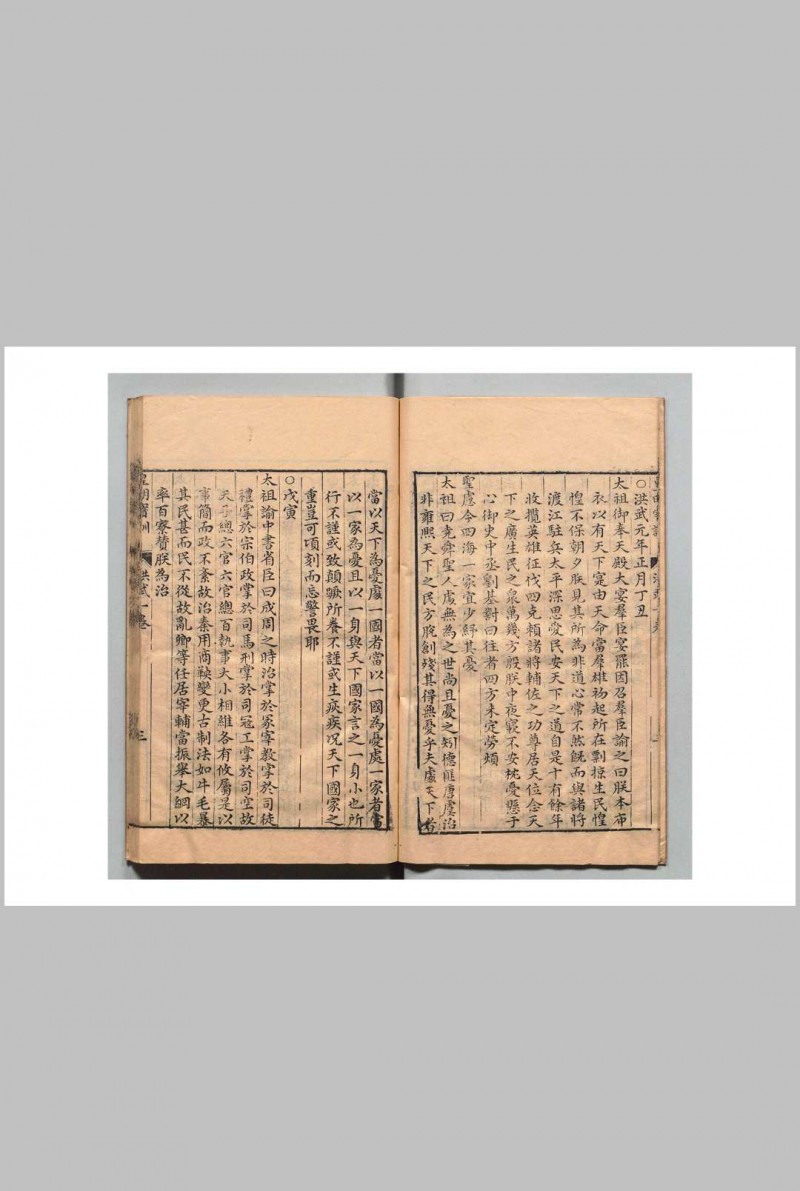 ○洪武元年正月丁丑
太祖御奉天殿大宴羣臣宴罷因召羣臣諭之曰朕本布
衣以有天下寔由天命當羣雄初起所在剽掠生民惶
惶不保朝夕朕見其所為非道心常不然既而與諸將
渡江駐兵太平深思愛民安天下之道自是十有餘年
收攬英雄征伐四克賴諸將輔佐之功尊居天位念天
下之廣生民之衆萬幾方殷朕中夜寢不安枕憂懸于
心御史中丞劉基對曰往者四方未定勞煩
聖慮今四海一家宜少紓其憂
太祖曰堯舜聖人處無為之世尚且憂之矧德匪唐虞治
非雍熙天下之民方脫創殘其得無憂乎夫處天下者
當以天下為憂處一國者當以一國為憂處一家者當
以一家為憂且以一身與天下國家言之一身小也所
行不謹或致顛蹶所養不謹或生疢疾况天下國家之
重豈可頃刻而忘警畏耶
○戊寅
太祖諭中書省臣曰成周之時治掌於冢宰教掌於司徒
禮掌於宗伯政掌於司馬刑掌於司寇工掌於司空故
天子總六官六官總百執事大小相維各有攸屬是以
事簡而政不紊故治秦用商鞅變更古制法如牛毛暴
其民甚而民不從故亂卿等任居宰輔當振舉大綱以
率百寮贊朕為治
皇明寶訓 洪武一卷 三